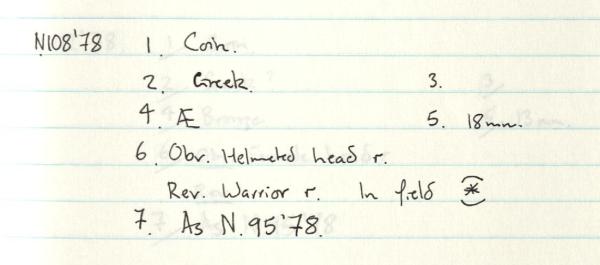 N108'78 1. Coin.
2. Greek. 3.
4. Æ 5. 18mm.
6. Obv. Helmeted head r.
Rev. Warrior r. In field (*)
7. As N.95'78.